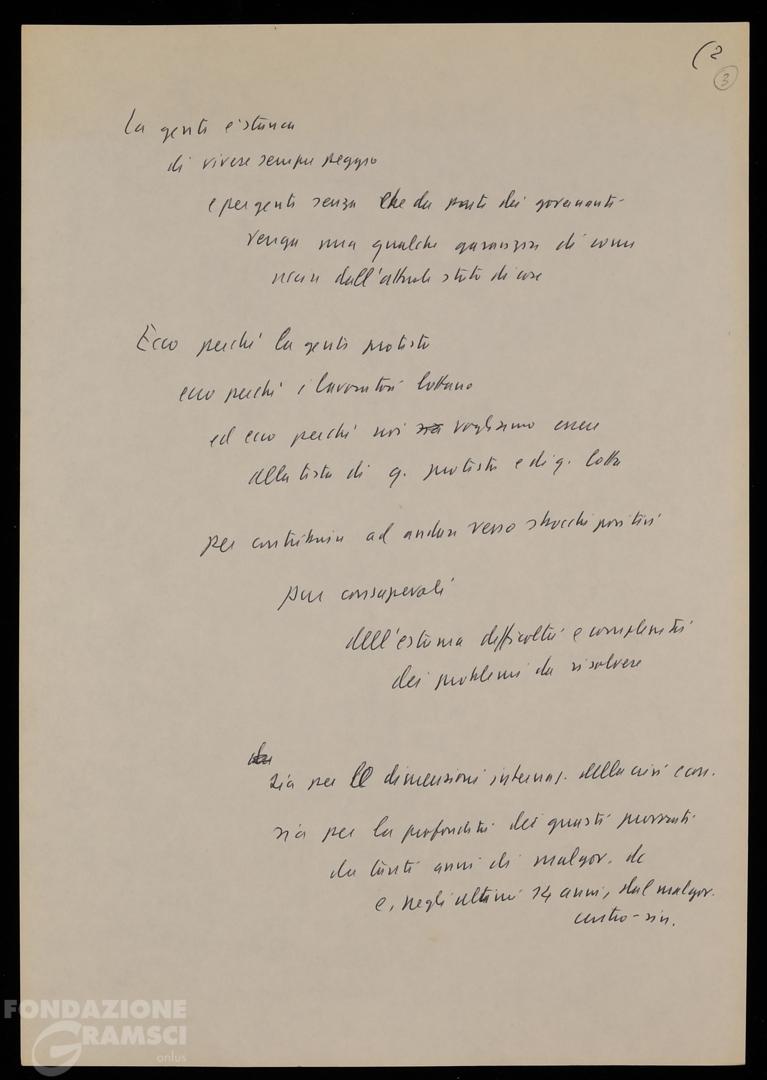 (2
3
La gente è stanca
di vivere sempre peggio
e per gente senza che da parte dei governanti
venga una qualche garanzia di come
uscire dall'attuale stato di cose
Ecco perché la gente protesta
ecco perché i lavoratori lottano
ed ecco perché noi vogliamo essere
alla testa di q. protesta e di q. lotta
per contribuire ad andare verso sbocchi positivi
pur consapevoli
dell'estrema difficoltà e complessità
dei problemi da risolvere
sia per le dimensioni internaz. della crisi econ.
sia per la profondità dei guasti provocati
da tanti anni di malgov. dc
e, negli ultimi 14 anni, dal malgov.
centro-sin.
FONDAZIONE
GRAMSCI
onlus